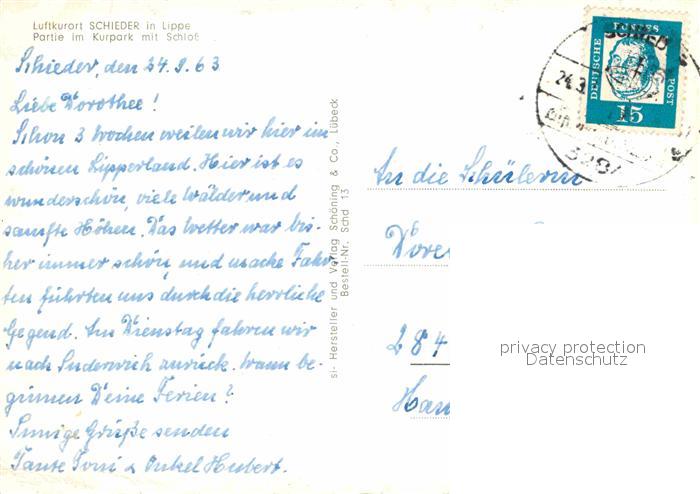 Luftkurort SCHIEDER in Lippe
Partie im Kurpark mit Schloß
Schieder, den 24.9.63
Liebe Dorothee!
Schon 3 Wochen weilen wir hier im
schönen Lipperland. Hier ist es
wunderschön, viele Wälder und
sanfte Höhen. Das Wetter war bis-
her immer schön, und manche Fahr-
ten führten uns durch die herrliche
Gegend. Am Dienstag fahren wir
nach Suderwich zurück. Wann be-
ginnen Deine Ferien?
Innige Grüße senden
Tante Toni & Onkel Hubert.
si- Hersteller und Verlag Schöning & Co., Lübeck
Bestell-Nr. Schd 13
DEUTSCHE BUNDESPOST
15
An die Schülerin
Dore
284
Han
privacy protection
Datenschutz